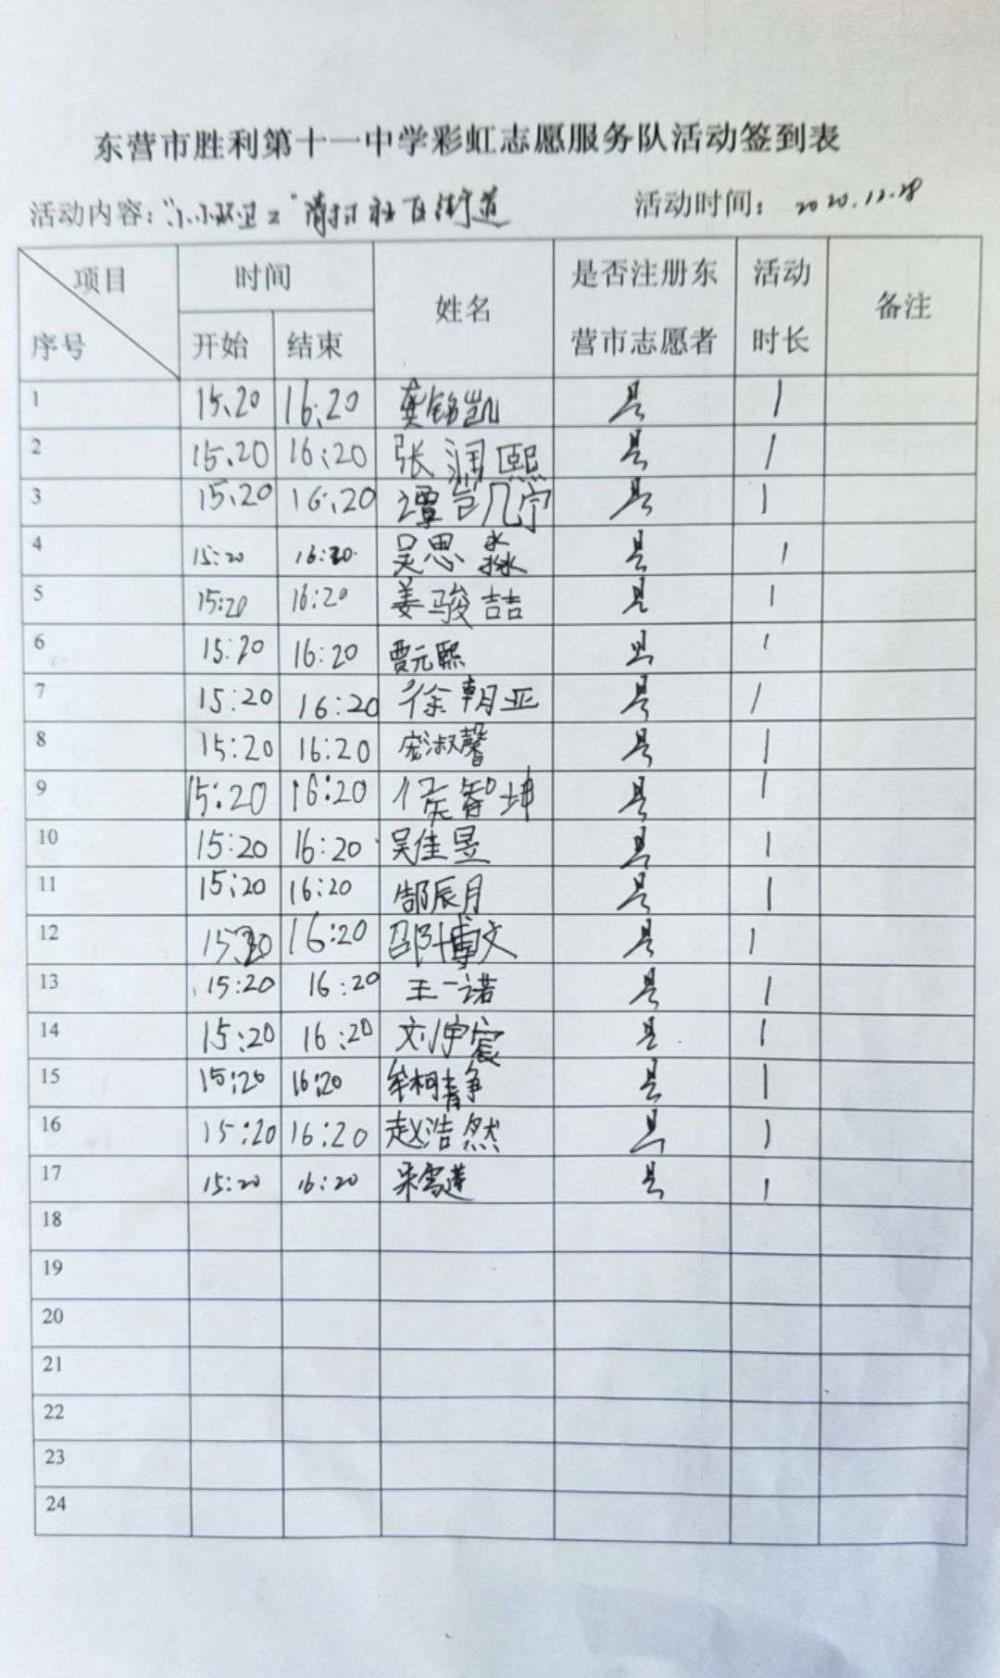 东营市胜利第十一中学彩虹志愿服务队活动签到表
活动内容：“小小环卫工”清扫社区街道 活动时间：2020.12.28
项目 时间 姓名 是否注册东营市志愿者 活动时长 备注
序号 开始 结束
1 15:20 16:20 龚铭凯 是 1
2 15:20 16:20 张润熙 是 1
3 15:20 16:20 谭凯宁 是 1
4 15:20 16:20 吴思淼 是 1
5 15:20 16:20 姜骏喆 是 1
6 15:20 16:20 贾元熙 是 1
7 15:20 16:20 徐朝亚 是 1
8 15:20 16:20 淑馨 是 1
9 15:20 16:20 侯智坤 是 1
10 15:20 16:20 吴佳昱 是 1
11 15:20 16:20 郜辰月 是 1
12 15:20 16:20 邵博文 是 1
13 15:20 16:20 王一诺 是 1
14 15:20 16:20 刘宇宸 是 1
15 15:20 16:20 牟柯静 是 1
16 15:20 16:20 赵浩然 是 1
17 15:20 16:20 宋雪莲 是 1
18
19
20
21
22
23
24